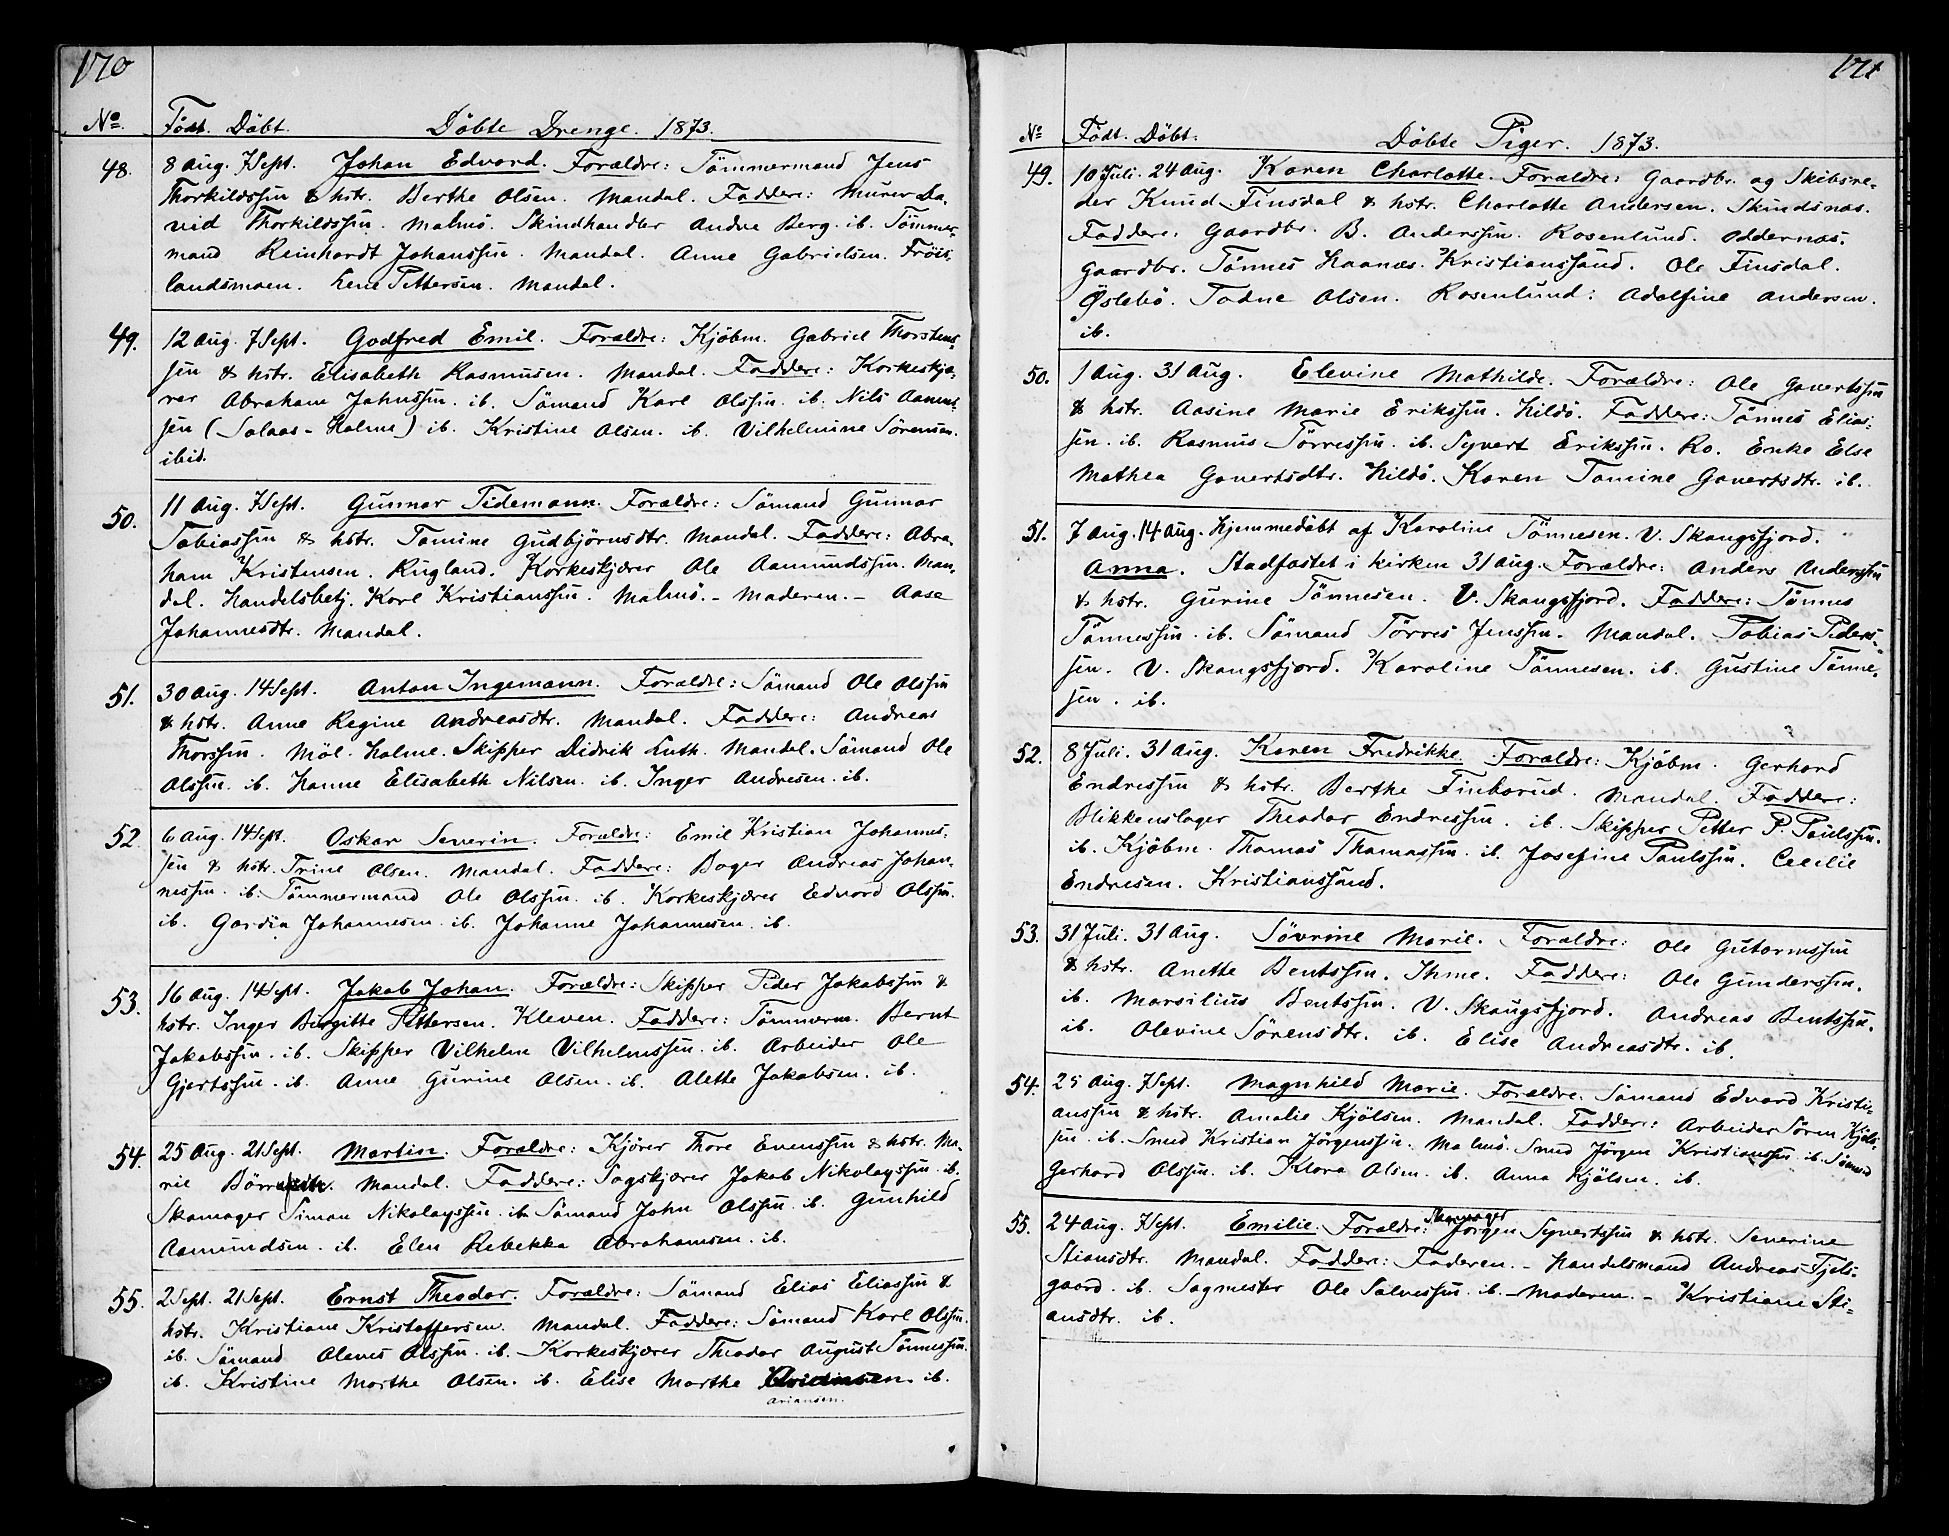 170
No. Födt. Döbt. Döbte Drenge. 1873.
48. 8 Aug. 7 Sept. Johan Edvard. Forældre: Tömmermand Jens
Thorkildssen & hstr. Berthe Olsen. Mandal. Faddere: Murer Da-
vid Thorkildssen. Malmö. Skindhandler Andrea Berg. ib. Tömmer-
mand Reinhardt Johanssen. Mandal. Anne Gabrielsen. Fröis-
landsmoen. Lene Pettersen. Mandal.
49. 12 Aug. 7 Sept. Godfred Emil. Forældre: Kjöbm. Gabriel Thorstens-
sen & hstr. Elisabeth Rasmusen. Mandal. Faddere: Korkeskjæ-
rer Abraham Jahnssen. ib. Sömand Karl Olssen. ib. Nils Aanen-
sen (Solaas-Holme) ib. Kristine Olsen. ib. Vilhelmine Sörensen.
ibid.
50. 11 Aug. 7 Sept. Gunnar Tidemann. Forældre: Sömand Gunnar
Tobiassen & hstr. Tomine Gudbjörnsdtr. Mandal. Faddere: Abra-
ham Kristensen. Rugland. Korkeskjærer Ole Aamundssen. Man-
dal. Handelsbetj. Karl Kristianssen. Malmö. - Moderen. - Aase
Johannesdtr. Mandal.
51. 30 Aug. 14 Sept. Anton Ingemann. Forældre: Sömand Ole Olssen
& hstr. Anne Regine Andreasdtr. Mandal. Faddere: Andreas
Thorssen. Möl. Holme. Skipper Didrik Luth. Mandal. Sömand Ole
Olssen. ib. Hanne Elisabeth Nilsen. ib. Inger Andresen. ib.
52. 6 Aug. 14 Sept. Oskar Severin. Forældre: Emil Kristian Johannes-
sen & hstr. Trine Olsen. Mandal. Faddere: Bager Andreas Johan-
nessen. ib. Tömmermand Ole Olssen. ib. Korkeskjærer Edvard Olssen.
ib. Gardia Johannesen. ib. Johanne Johannesen. ib.
53. 16 Aug. 14 Sept. Jakob Johan. Forældre: Skipper Peder Jakobssen &
hstr. Inger Birgitte Pettersen. Kleven. Faddere: Tömmerm. Bernt
Jakobssen. ib. Skipper Vilhelm Vilhelmssen. ib. Arbeider Ole
Gjertssen. ib. Anne Gurine Olsen. ib. Alette Jakobsen. ib.
54. 25 Aug. 21 Sept. Martin. Forældre: Kjörer Thore Evenssen & hstr. Ma-
rie Mandal. Faddere: Sagskjærer Jakob Nikolayssen. ib.
Skomager Simon Nikolayssen. ib. Sömand John Olssen. ib. Gunhild
Aamundsen. ib. Elen Rebekka Abrahamsen. ib.
55. 2 Sept. 21 Sept. Ernst Theodor. Forældre: Sömand Elias Eliassen &
hstr. Kristiane Kristoffersen. Mandal. Faddere: Sömand Karl Olssen.
ib. Sömand Olaves Olssen. ib. Korkeskjærer Theodor August Tönnessen.
ib. Kristine Marthe Olsen. ib. Elise Marthe ib.
Ariansen.
171
No Födt. Döbt: Döbte Piger. 1873.
49. 10 Juli. 24 Aug. Karen Charlotte. Forældre: Gaardbr. og Skibsre-
der Knud Finsdal & hstr. Charlotte Andersen. Skindsnæs.
Faddere: Gaardbr. B. Anderssen. Rosenlund. Oddernæs.
Gaardbr. Tönnes Haanæs. Kristianssand. Ole Finsdal.
Öslebö. Todne Olsen. Rosenlund: Adolfine Andersen.
ib.
50. 1 Aug. 31 Aug. Elevine Mathilde. Forældre: Ole Govertssen
& hstr. Aasine Marie Erikssen. Hildö. Faddere: Tönnes Elias-
sen. ib. Rasmus Törressen. ib. Syvert Erikssen. Ro. Enke Else
Mathea Govertsdtr. Hildö. Karen Tomine Govertsdtr. ib.
51. 7 Aug. 14 Aug. Hjemmedöbt af Karoline Tönnesen. V. Skangsfjord.
Anna. Stadfæstet i kirken 31 Aug. Forældre: Anders Anderssen
& hstr. Gurine Tönnesen. V. Skangsfjord. Faddere: Tönnes
Tönnessen. ib. Sömand Törres Jenssen. Mandal. Tobias Peders-
sen. V. Skangsfjord. Karoline Tönnesen. ib. Gustine Tönne-
sen. ib.
52. 8 Juli. 31 Aug. Karen Fredrikke. Forældre: Kjöbm. Gerhard
Endressen & hstr. Berthe Finborud. Mandal. Faddere:
Blikkenslager Theodor Endressen. ib. Skipper Petter P. Paulssen.
ib. Kjöbm. Thomas Thomassen. ib. Josefine Paulssen. Cecilie
Endresen. Kristianssand.
53. 31 Juli. 31 Aug. Sövrine Marie. Forældre: Ole Gutormssen
& hstr. Anette Bentssen. Ihme. Faddere: Ole Gunderssen.
ib. Marsilius Bentssen. V. Skangsfjord. Andreas Bentssen.
ib. Olevine Sörensdtr. ib. Elise Andreasdtr. ib.
54. 25 Aug. 7 Sept. Magnhild Marie. Forældre: Sömand Edvard Kristi-
anssen & hstr. Amalie Kjölsen. Mandal. Faddere: Arbeider Sören Kjöls-
sen. ib. Smed Kristian Jörgenssen. Malmö. Smed Jörgen Kristianssen. ib. Sömand
Gerhard Olssen. ib. Klara Olsen. ib. Anna Kjölsen. ib.
55. 24 Aug. 7 Sept. Emilie. Forældre: Skomager Jörgen Syvertssen & hstr. Severine
Stiansdtr. Mandal. Faddere: Faderen. - Handelsmand Andreas Fjels-
gaard. ib. Sagmester Ole Salvessen. ib. - Moderen. - Kristiane Sti-
ansdtr. ib.